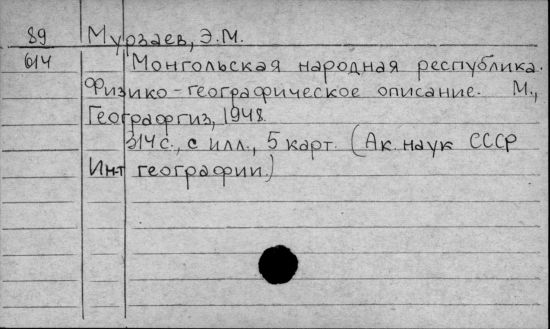 89 Мурзаев, Э.М.
614 Монгольская народная республика.
Физико-географическое описание. М.,
Географгиз, 1948.
314 с., с илл., 5 карт. (Ак. наук СССР
Ин-т географии.)